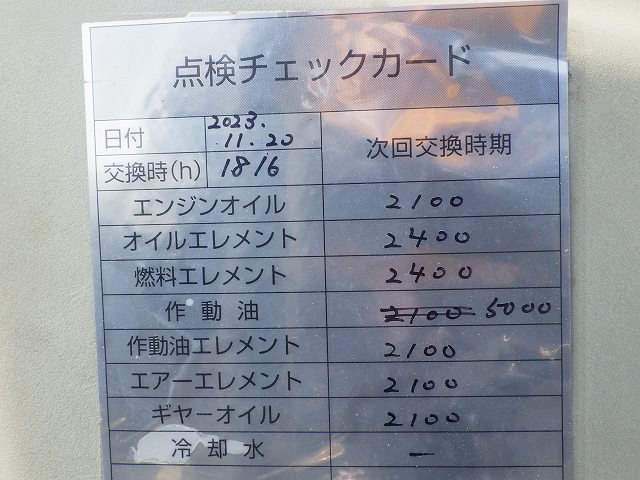 点検チェックカード
日付 2023.11.20 次回交換時期
交換時(h) 1816
エンジンオイル 2100
オイルエレメント 2400
燃料エレメント 2400
作動油 2100 5000
作動油エレメント 2100
エアーエレメント 2100
ギヤーオイル 2100
冷却水 ー